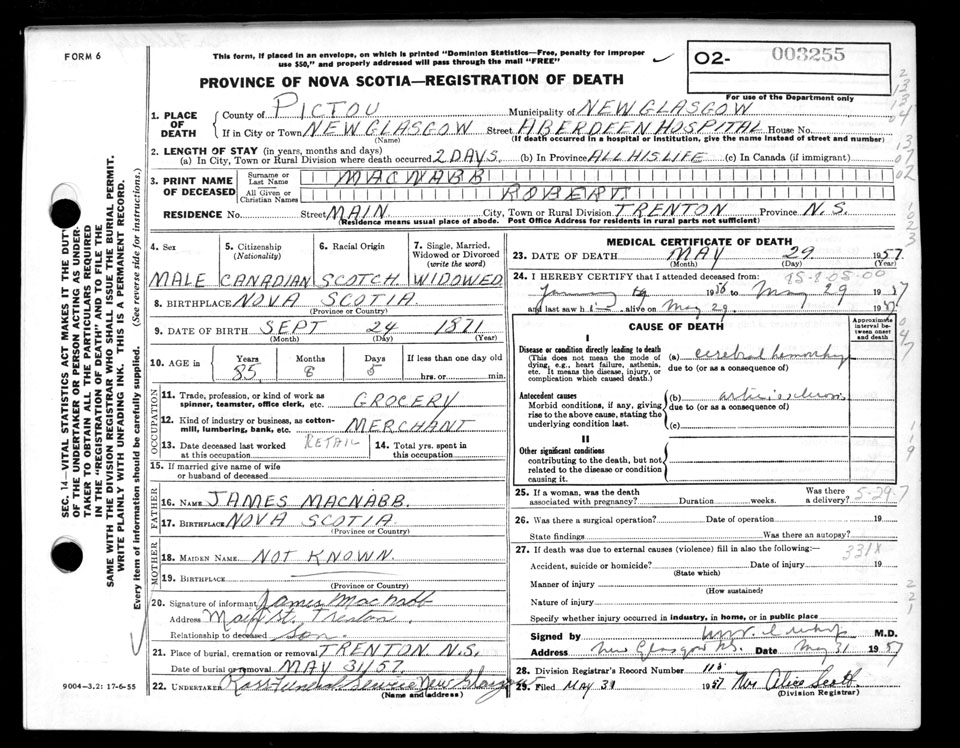 FORM 6
This form, if placed in an envelope, on which is printed "Dominion Statistics—Free, penalty for improper
use $50," and properly addressed will pass through the mail "FREE"
02- 003255
PROVINCE OF NOVA SCOTIA—REGISTRATION OF DEATH
For use of the Department only
1. PLACE OF DEATH
County of PICTOU Municipality of NEW GLASGOW
If in City or Town NEW GLASGOW Street ABERDEEN HOSPITAL House No.
(Name) (If death occurred in a hospital or institution, give the name instead of street and number)
2. LENGTH OF STAY (in years, months and days)
(a) In City, Town or Rural Division where death occurred 2 DAYS. (b) In Province ALL HIS LIFE (c) In Canada (if immigrant)
3. PRINT NAME OF DECEASED
Surname or Last Name MACNABB
All Given or Christian Names ROBERT
RESIDENCE No. Street MAIN City, Town or Rural Division TRENTON Province N.S.
(Residence means usual place of abode. Post Office Address for residents in rural parts not sufficient)
4. Sex
MALE
5. Citizenship
(Nationality)
CANADIAN
6. Racial Origin
SCOTCH
7. Single, Married, Widowed or Divorced
(write the word)
WIDOWED
8. BIRTHPLACE NOVA SCOTIA
(Province or Country)
9. DATE OF BIRTH SEPT 24 1871
(Month) (Day) (Year)
10. AGE in Years Months Days If less than one day old
85 8 5 hrs. or min.
OCCUPATION
11. Trade, profession, or kind of work as
spinner, teamster, office clerk, etc. GROCERY
12. Kind of industry or business, as cotton-
mill, lumbering, bank, etc. MERCHANT
RETAIL
13. Date deceased last worked
at this occupation
14. Total yrs. spent in
this occupation
15. If married give name of wife
or husband of deceased
FATHER
16. NAME JAMES MACNABB.
17. BIRTHPLACE NOVA SCOTIA.
(Province or Country)
MOTHER
18. MAIDEN NAME NOT KNOWN.
19. BIRTHPLACE
(Province or Country)
20. Signature of informant James MacNabb
Address Main St. Trenton
Relationship to deceased son.
21. Place of burial, cremation or removal TRENTON N.S.
Date of burial or removal MAY 31/57.
22. UNDERTAKER Ross Funeral Service New Glasgow
(Name and address)
MEDICAL CERTIFICATE OF DEATH
23. DATE OF DEATH MAY 29 1957
(Month) (Day) (Year)
24. I HEREBY CERTIFY that I attended deceased from:
January 1956 to May 29 1957
and last saw him alive on May 29. 1957
CAUSE OF DEATH
Approximate interval between onset and death
I
Disease or condition directly leading to death
(This does not mean the mode of
dying, e.g., heart failure, asthenia,
etc. It means the disease, injury, or
complication which caused death.)
(a) cerebral hemorrhage
due to (or as a consequence of)
Antecedent causes
Morbid conditions, if any, giving
rise to the above cause, stating the
underlying condition last.
(b) arteriosclerosis
due to (or as a consequence of)
(c)
II
Other significant conditions
contributing to the death, but not
related to the disease or condition
causing it.
25. If a woman, was the death
associated with pregnancy? Duration weeks. Was there a delivery?
5-29-7
26. Was there a surgical operation? Date of operation 19
State findings Was there an autopsy?
27. If death was due to external causes (violence) fill in also the following:—
331X
Accident, suicide or homicide? Date of injury 19
(State which)
Manner of injury
(How sustained)
Nature of injury
Specify whether injury occurred in industry, in home, or in public place
Signed by M.D.
Address New Glasgow N.S. Date May 31 1957
28. Division Registrar's Record Number
29. Filed MAY 31 1957 Mrs Alice Scott.
(Division Registrar)
9004—3.2: 17-6-55
SEC. 14—VITAL STATISTICS ACT MAKES IT THE DUTY
OF THE UNDERTAKER OR PERSON ACTING AS UNDER-
TAKER TO OBTAIN ALL THE PARTICULARS REQUIRED
IN THE "REGISTRATION OF DEATH" AND TO FILE THE
SAME WITH THE DIVISION REGISTRAR WHO SHALL ISSUE THE BURIAL PERMIT.
WRITE PLAINLY WITH UNFADING INK. THIS IS A PERMANENT RECORD.
Every item of information should be carefully supplied. (See reverse side for instructions.)